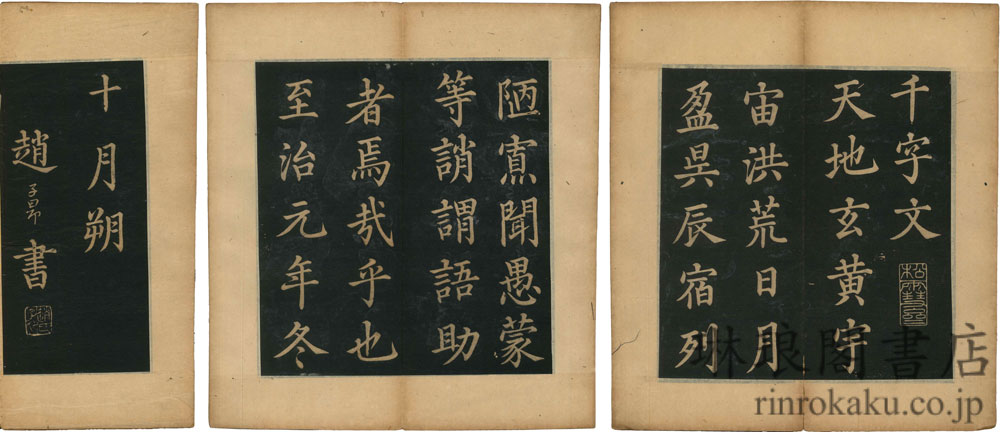 千字文
松雪齋
天地玄黄宇
宙洪荒日月
盈昃辰宿列
陋寡聞愚蒙
等誚謂語助
者焉哉乎也
至治元年冬
十月朔
趙子昂書
琳琅閣書店
rinrokaku.co.jp